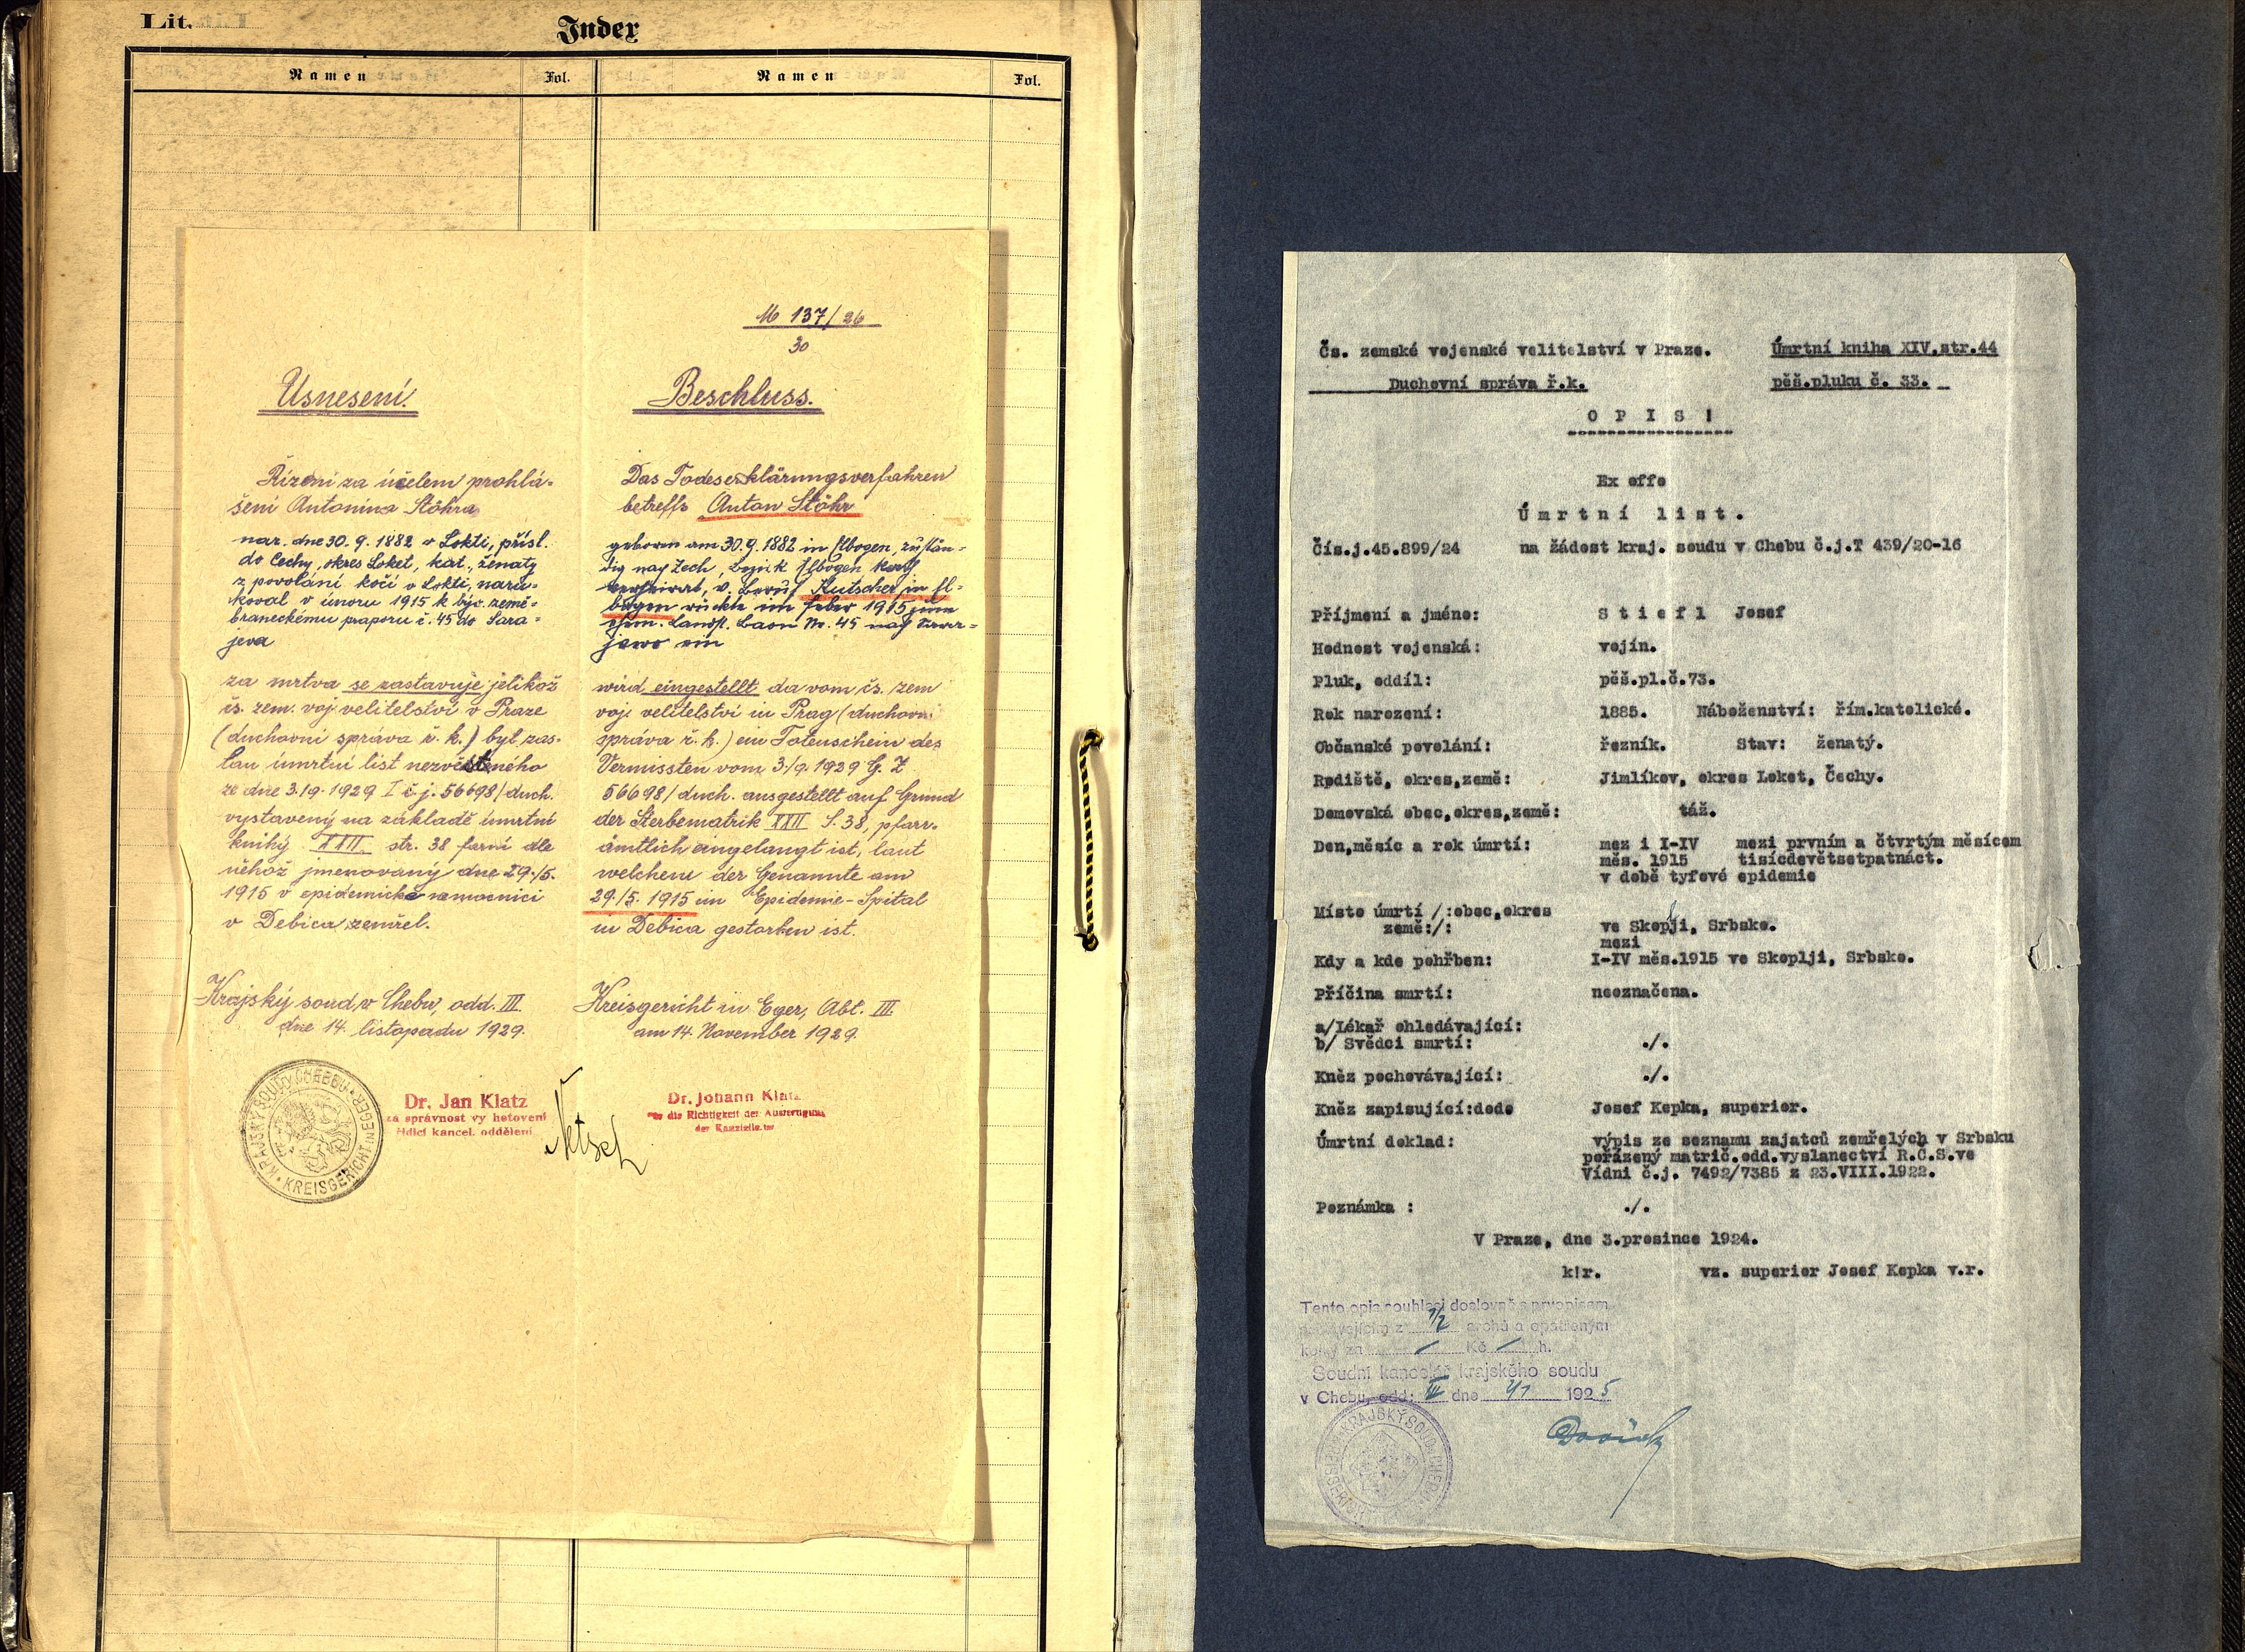 Lit.
Index
Namen
Fol.
Namen
Fol.
M 137/26
30
Usnesení.
Řízení za účelem prohlá-
šení Antonína Stöhra
nar. dne 30. 9. 1882 v Lokti, přísl.
do Cechy, okres Loket, kat., ženatý
z povolání kočí v Lokti, naru-
koval v únoru 1915 k býv. země-
braneckému praporu č. 45 do Sara-
jeva
za mrtva se zastavuje jelikož
čs. zem. voj. velitelství v Praze
(duchovní správa ř. k.) byl zas-
lán úmrtní list nezvěstného
ze dne 3./9. 1929 č. j. 56698/duch.
vystavený na základě úmrtní
knihy XXII str. 38 farní dle
něhož jmenovaný dne 29./5.
1915 v epidemické nemocnici
v Debica zemřel.
Krajský soud v Chebu, odd. III.
dne 14. listopadu 1929.
KRAJSKÝ SOUD V CHEBU
KREISGERICHT IN EGER
Dr. Jan Klatz
za správnost vyhotovení
řídící kancel. oddělení
Beschluss.
Das Todeserklärungsverfahren
betreffs Anton Stöhr
geboren am 30. 9. 1882 in Elbogen, zustän-
dig nach Zech, Bezirk Elbogen kath
verheirat, v. Beruf Kutscher in El-
bogen rückte im Feber 1915 zum
ehem. Landst. Baon Nr. 45 nach Sarar-
jewo ein
wird eingestellt da vom čs. zem
voj. velitelství in Prag (duchovní
správa ř. k.) ein Totenschein des
Vermissten vom 3./9. 1929 G. Z
56698/duch. ausgestellt auf Grund
der Sterbematrik XXII S. 38, pfarr-
ämtlich eingelangt ist, laut
welchem der Genannte am
29./5. 1915 im Epidemie-Spital
in Debica gestorben ist.
Kreisgericht in Eger, Abt. III.
am 14. November 1929.
Dr. Johann Klatz
für die Richtigkeit der Ausfertigung
der Kanzleileiter
Čs. zemské vojenské velitelství v Praze.
Úmrtní kniha XIV.str.44
Duchovní správa ř.k.
pěš.pluku č. 33.
O P I S !
Ex offo
Úmrtní list.
Čís.j.45.899/24 na žádost kraj. soudu v Chebu č.j.T 439/20-16
Příjmení a jméno: Stiefl Josef
Hodnost vojenská: vojín.
Pluk, oddíl: pěš.pl.č.73.
Rok narození: 1885. Náboženství: řím.katolické.
Občanské povolání: řezník. Stav: ženatý.
Rodiště, okres,země: Jimlíkov, okres Loket, Čechy.
Domovská obec,okres,země: táž.
Den,měsíc a rok úmrtí: mez i I-IV mezi prvním a čtvrtým měsícem
měs. 1915 tisícdevětsetpatnáct.
v době tyfové epidemie
Místo úmrtí /:obec,okres
země:/: ve Skoplji, Srbsko.
mezi
Kdy a kde pohřben: I-IV měs.1915 ve Skoplji, Srbsko.
Příčina smrti: neoznačena.
a/Lékař ohledávající:
b/ Svědci smrti: ./.
Kněz pochovávající: ./.
Kněz zapisující:dodo Josef Kopka, superior.
Úmrtní doklad: výpis ze seznamu zajatců zemřelých v Srbsku
pořízený matrič.odd.vyslanectví R.Č.S.ve
Vídni č.j. 7492/7385 z 23.VIII.1922.
Poznámka : ./.
V Praze, dne 3.prosince 1924.
k!r. vz. superior Josef Kopka v.r.
Tento opis souhlasí doslovně s prvopisem
1/2 archů a opatřeným
kolky za Kč h.
Soudní kancelář krajského soudu
v Chebu, odd: III dne 4/1 1925
KRAJSKÝ SOUD V CHEBU